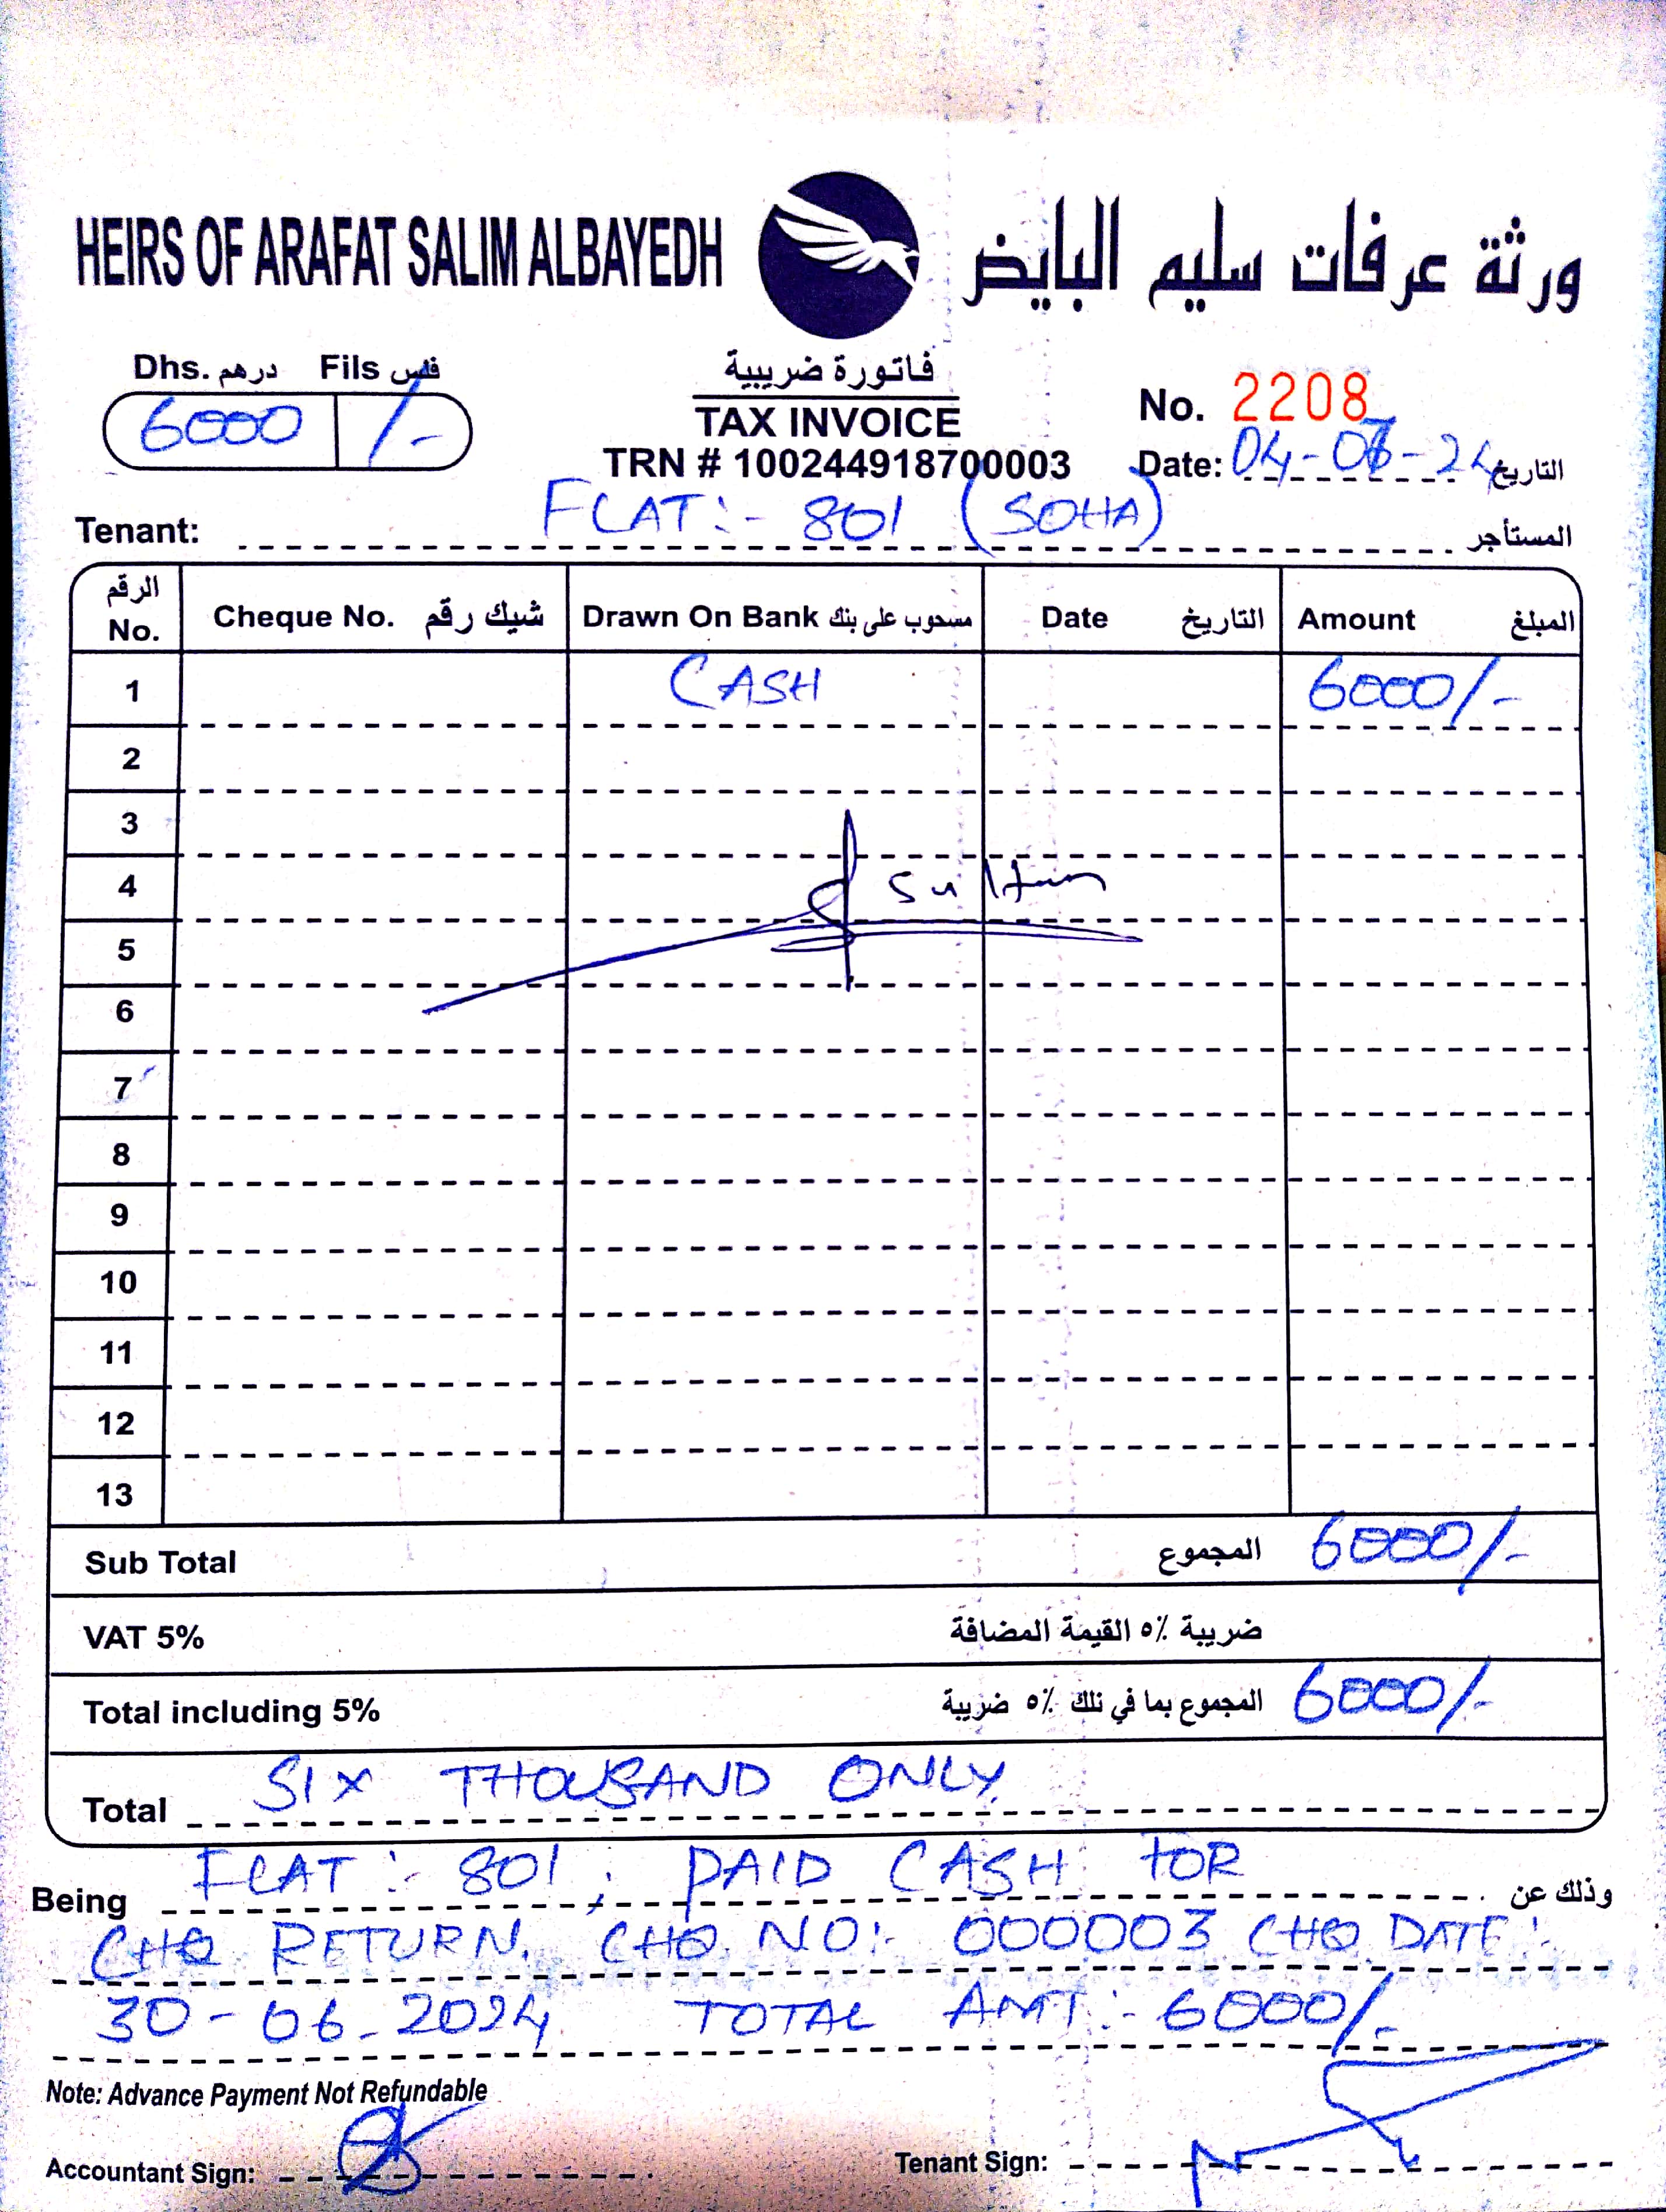 HEIRS OF ARAFAT SALIM ALBAYEDH ورثة عرفات سليم البايض
Dhs. درهم Fils فلس
6000 /-
فاتورة ضريبية
TAX INVOICE
TRN # 100244918700003
No. 2208
Date: 04-07-24 التاريخ
Tenant: FLAT:- 801 (SOHA) المستأجر
الرقم No. Cheque No. شيك رقم Drawn On Bank مسحوب على بنك Date التاريخ Amount المبلغ
1 CASH 6000/-
2
3
4 Sultan
5
6
7
8
9
10
11
12
13
Sub Total المجموع 6000/-
VAT 5% ضريبة ٥٪ القيمة المضافة
Total including 5% المجموع بما في ذلك ٥٪ ضريبة 6000/-
Total SIX THOUSAND ONLY
Being FLAT:- 801, PAID CASH FOR وذلك عن
CHQ RETURN. CHQ. NO:- 000003 CHQ DATE:-
30-06-2024 TOTAL AMT:- 6000/-
Note: Advance Payment Not Refundable
Accountant Sign: Tenant Sign: